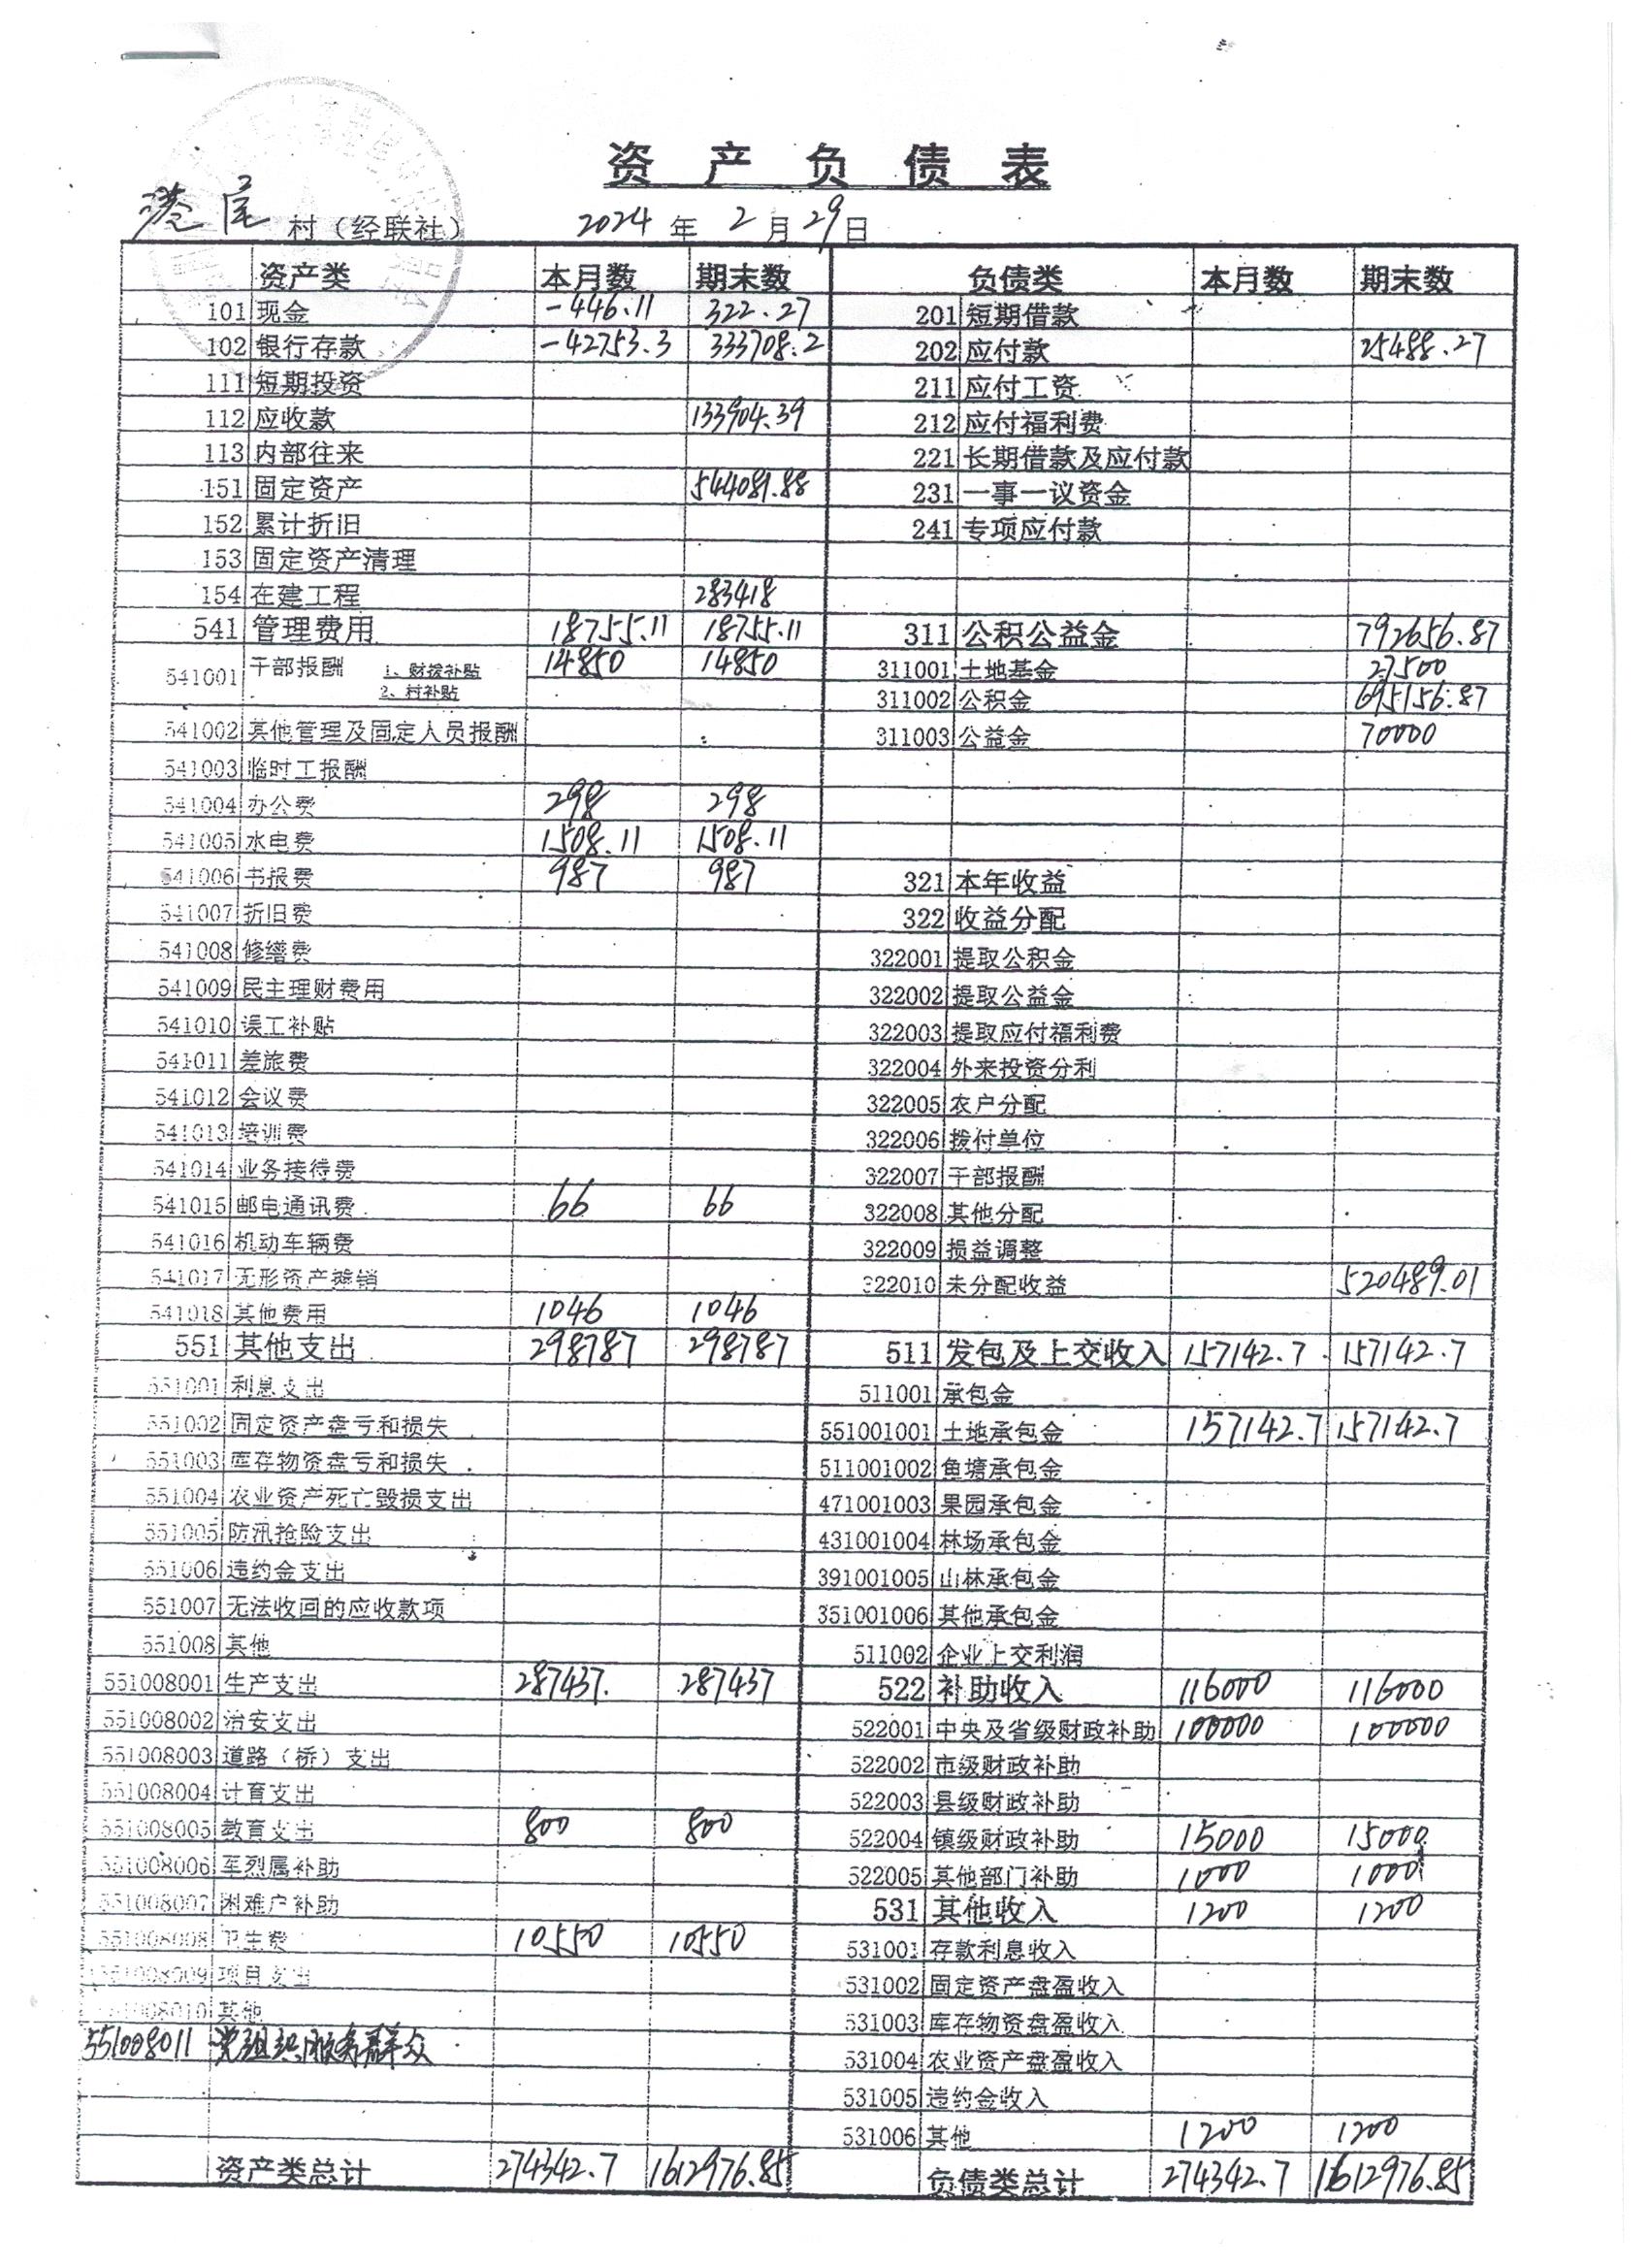 资产负债表
港尾 村（经联社） 2024 年 2 月 29 日
资产类 本月数 期末数 负债类 本月数 期末数
101 现金 -446.11 322.27 201 短期借款
102 银行存款 -42753.3 333708.2 202 应付款 25488.27
111 短期投资 211 应付工资
112 应收款 133904.39 212 应付福利费
113 内部往来 221 长期借款及应付款
151 固定资产 544081.88 231 一事一议资金
152 累计折旧 241 专项应付款
153 固定资产清理
154 在建工程 283418
541 管理费用 18755.11 18755.11 311 公积公益金 792656.87
541001 干部报酬 1、财拨补贴 14850 14850 311001 土地基金 27500
2、村补贴 311002 公积金 695156.87
541002 其他管理及固定人员报酬 311003 公益金 70000
541003 临时工报酬
541004 办公费 298 298
541005 水电费 1508.11 1508.11
541006 书报费 987 987 321 本年收益
541007 折旧费 322 收益分配
541008 修缮费 322001 提取公积金
541009 民主理财费用 322002 提取公益金
541010 误工补贴 322003 提取应付福利费
541011 差旅费 322004 外来投资分利
541012 会议费 322005 农户分配
541013 培训费 322006 拨付单位
541014 业务接待费 322007 干部报酬
541015 邮电通讯费 66 66 322008 其他分配
541016 机动车辆费 322009 损益调整
541017 无形资产摊销 322010 未分配收益 520489.01
541018 其他费用 1046 1046
551 其他支出 298787 298787 511 发包及上交收入 157142.7 157142.7
551001 利息支出 511001 承包金
551002 固定资产盘亏和损失 551001001 土地承包金 157142.7 157142.7
551003 库存物资盘亏和损失 511001002 鱼塘承包金
551004 农业资产死亡毁损支出 471001003 果园承包金
551005 防汛抢险支出 431001004 林场承包金
551006 违约金支出 391001005 山林承包金
551007 无法收回的应收款项 351001006 其他承包金
551008 其他 511002 企业上交利润
551008001 生产支出 287437. 287437 522 补助收入 116000 116000
551008002 治安支出 522001 中央及省级财政补助 100000 100000
551008003 道路（桥）支出 522002 市级财政补助
551008004 计育支出 522003 县级财政补助
551008005 教育支出 800 800 522004 镇级财政补助 15000 15000
551008006 军烈属补助 522005 其他部门补助 1000 1000
551008007 困难户补助 531 其他收入 1200 1200
551008008 卫生费 10550 10550 531001 存款利息收入
551008009 项目支出 531002 固定资产盘盈收入
551008010 其他 531003 库存物资盘盈收入
551008011 党组织服务群众 531004 农业资产盘盈收入
531005 违约金收入
531006 其他 1200 1200
资产类总计 274342.7 1612976.85 负债类总计 274342.7 1612976.85